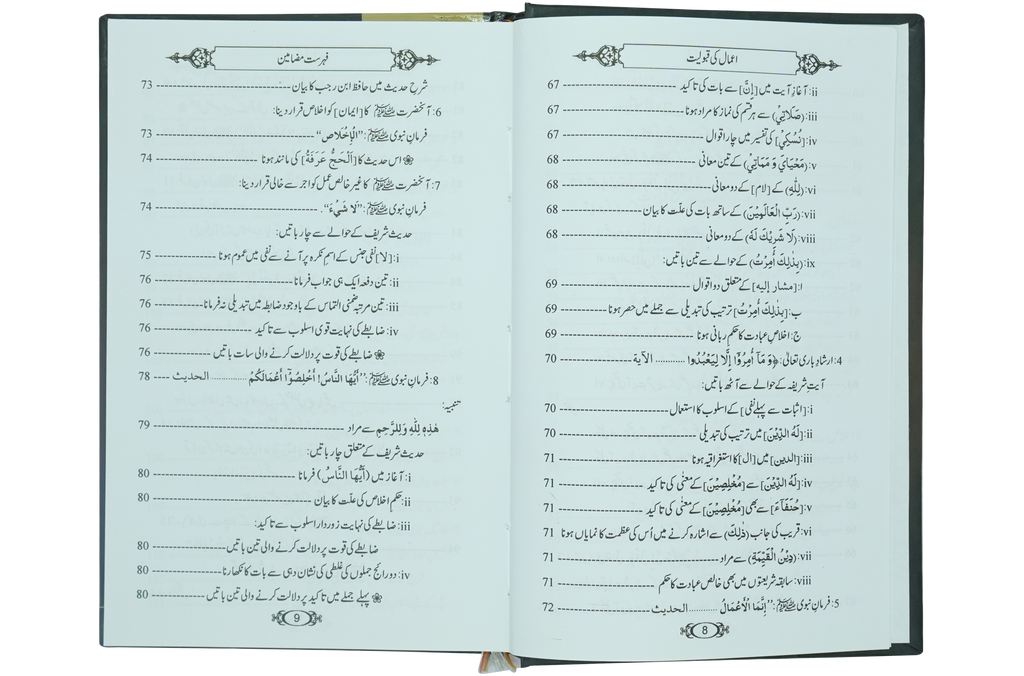 اعمال کی قبولیت
ii: آغازِ آیت میں [إِنَّ] سے بات کی تاکید ---------- 67
iii: (صَلَاتِيْ) سے ہر قسم کی نماز کا مراد ہونا ---------- 67
iv: [نُسُكِيْ] کی تفسیر میں چار اقوال ---------- 67
v: (مَحْيَايَ وَ مَمَاتِيْ) کے تین معانی ---------- 68
vi: (لِلّٰهِ) کے [لام] کے دو معانی ---------- 68
vii: (رَبِّ الْعَالَمِيْنَ) کے ساتھ بات کی علّت کا بیان ---------- 68
viii: (لَا شَرِيْكَ لَهُ) کے دو معانی ---------- 68
ix: (بِذٰلِكَ أُمِرْتُ) کے حوالے سے تین باتیں:
ا: [مشار إليه] کے متعلق دو اقوال ---------- 69
ب: [بِذٰلِكَ أُمِرْتُ] ترتیب کی تبدیلی سے جملے میں حصر ہونا ---------- 69
ج: اخلاصِ عبادت کا حکمِ ربانی ہونا ---------- 69
4: ارشادِ باری تعالیٰ: ﴿وَ مَآ أُمِرُوْٓا إِلَّا لِيَعْبُدُوا .......... الآية ---------- 70
آیتِ شریفہ کے حوالے سے آٹھ باتیں:
i: [اثبات سے پہلے نفی] کے اسلوب کا استعمال ---------- 70
ii: [لَهُ الدِّيْنَ] میں ترتیب کی تبدیلی ---------- 70
iii: [الدين] میں [ال] کا استغراقیہ ہونا ---------- 71
iv: [لَهُ الدِّيْنَ] سے [مُخْلِصِيْنَ] کے معنٰی کی تاکید ---------- 71
v: [حُنَفَآءَ] سے بھی [مُخْلِصِيْنَ] کے معنٰی کی تاکید ---------- 71
vi: قریب کی جانب (ذٰلِكَ) سے اشارہ کرنے میں اُس کی عظمت کا نمایاں ہونا 71
vii: (دِيْنُ الْقَيِّمَةِ) سے مراد ---------- 71
viii: سابقہ شریعتوں میں بھی خالص عبادت کا حکم ---------- 71
5: فرمانِ نبوی ﷺ: ’’إِنَّمَا الْأَعْمَالُ .......... الحديث ---------- 72
8
فہرست مضامین
شرحِ حدیث میں حافظ ابن رجب کا بیان ---------- 73
6: آنحضرت ﷺ کا [ایمان] کو اخلاص قرار دینا:
فرمانِ نبوی ﷺ: ’’الْإِخْلَاصِ‘‘ ---------- 73
❀ اس حدیث کا [اَلْحَجُّ عَرَفَةُ] کی مانند ہونا ---------- 74
7: آنحضرت ﷺ کا غیر خالص عمل کو اجر سے خالی قرار دینا:
فرمانِ نبوی ﷺ: ’’لَا شَيْءَ‘‘. ---------- 74
حدیث شریف کے حوالے سے چار باتیں:
i: [لا] نفی جنس کے اسمِ نکرہ پر آنے سے نفی میں عموم ہونا ---------- 75
ii: تین دفعہ ایک ہی جواب فرمانا ---------- 76
iii: تین مرتبہ ضمنی التماس کے باوجود ضابطہ میں تبدیلی نہ فرمانا ---------- 76
iv: ضابطے کی نہایت قوی اسلوب سے تاکید ---------- 76
❀ ضابطے کی قوت پر دلالت کرنے والی سات باتیں ---------- 76
8: فرمانِ نبوی ﷺ: ’’أَيُّهَا النَّاسُ! أَخْلِصُوْا أَعْمَالَكُمْ .......... الحديث ---- 78
تنبیہ:
هٰذِهِ لِلّٰهِ وَلِلرَّحِمِ سے مراد ---------- 79
حدیث شریف کے متعلق چار باتیں:
i: آغاز میں (أَيُّهَا النَّاسُ) فرمانا ---------- 80
ii: حکمِ اخلاص کی علّت کا بیان ---------- 80
iii: ضابطے کی نہایت زوردار اسلوب سے تاکید:
ضابطے کی قوت پر دلالت کرنے والی تین باتیں ---------- 80
iv: دو رائج جملوں کی غلطی کی نشان دہی سے بات کا نکھارنا ---------- 80
❀ پہلے جملے میں تاکید پر دلالت کرنے والی تین باتیں ---------- 80
9